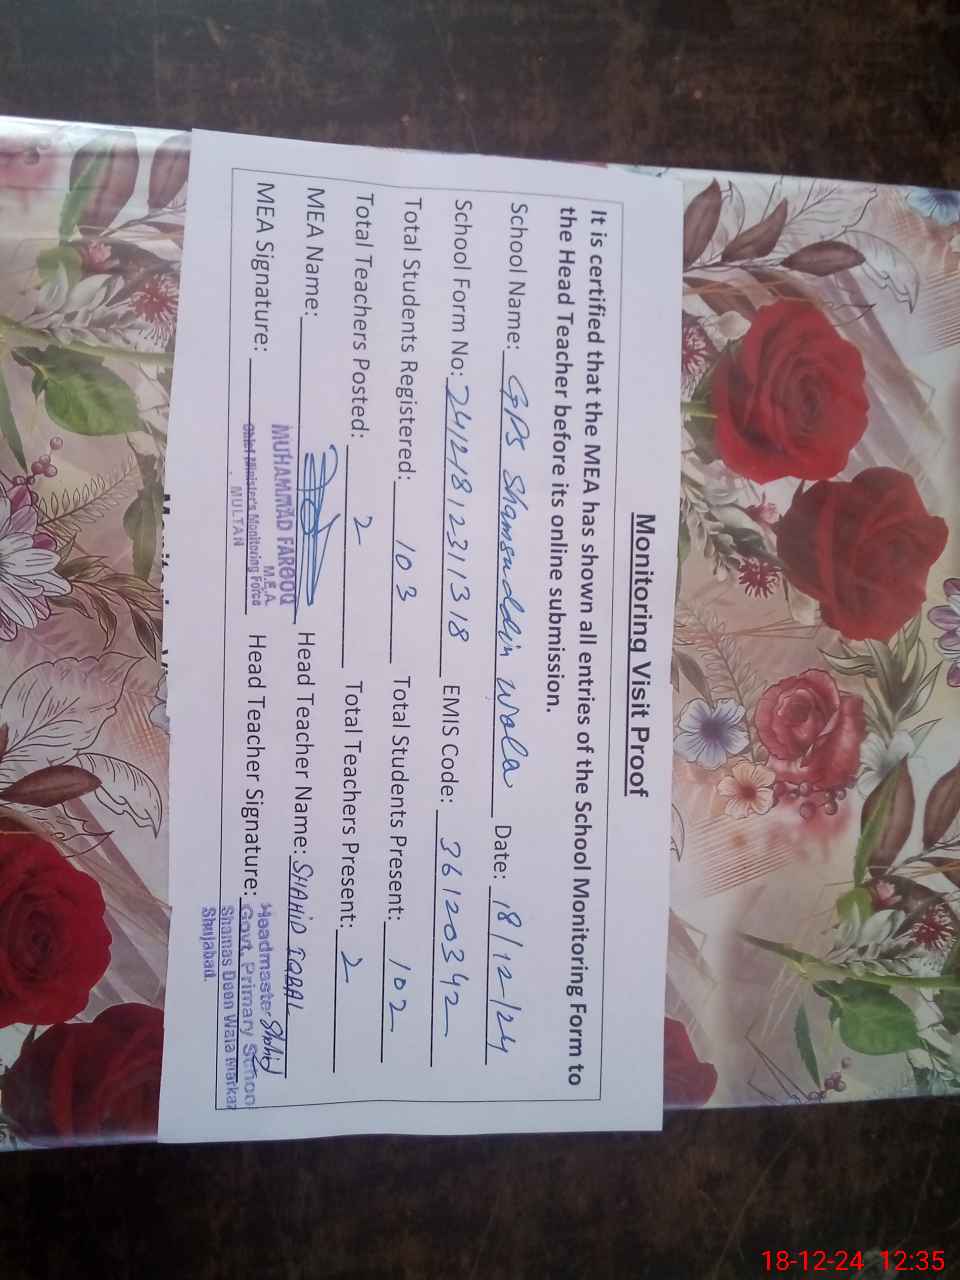 Monitoring Visit Proof
It is certified that the MEA has shown all entries of the School Monitoring Form to
the Head Teacher before its online submission.
School Name: GPS Shamsuddin wala Date: 18/12/24
School Form No: 241218123111318 EMIS Code: 36120342
Total Students Registered: 103 Total Students Present: 102
Total Teachers Posted: 2 Total Teachers Present: 2
MEA Name: Head Teacher Name: SHAHID IQBAL
MUHAMMAD FAROOQ
M.E.A.
MEA Signature: Head Teacher Signature: Shahid
Chief Minister's Monitoring Force
MULTAN
Headmaster
Govt. Primary School
Shamas Deen Wala Markaz
Shujabad.
18-12-24 12:35